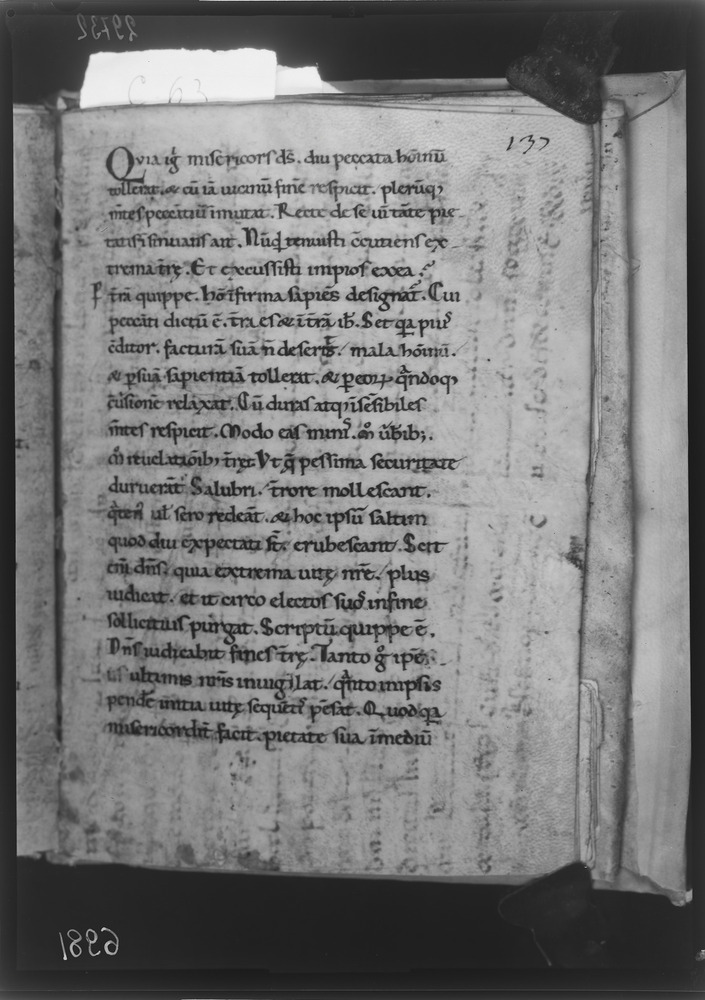 29732
C 63
137
Qvia iḡ misericors ds̄. diu peccata hōinū
tollerat. & cū iā uicinū finē respicit. plerūq;
m̄tes peccātiū īmutat. Recte de se uītate pie
tatis insinuans ait. Nūq̇d tenuisti ccutiens ex
trema tr̄ę. Et excussisti impios ex ea?
tr̄a quippe. hōī firma sapiēs designat̄. Cui
peccāti dictū ē. tr̄a es & ī tr̄ā ib̄. Set qa pius
cditor. facturā suā n̄ deserit. mala hōinū.
& p suā sapientiā tollerat. & p eoꝝ qndoq;
ūsionē relaxat. Cū duras atq; īsēsibiles
m̄tes respicit. Modo eas minis. m̊ ūb̄ib;.
m̊ reuelatiōib; tr̄ęt. Vt q̄ pessima securitate
duruerāt. Salubri. tr̄rore mollescant.
q̊ten̄ ul̄ sero redeāt. & hoc ipsū saltim
quod diu expectati st̄. erubescant. Scit
eni dn̄s. quia extrema uitę nr̄e. plus
iudicat. et iccirco electos suos in fine
sollicitius purgat. Scriptū quippe ē.
Dn̄s iudicabit fines tr̄ę. Tanto g̊ ipē
ultimis nr̄is inuigilat. q̊nto in ipsis
pendē initia uitę sequētis pēsat. Quod qa
misericordit̄ facit. pietate sua ī mediū
6981